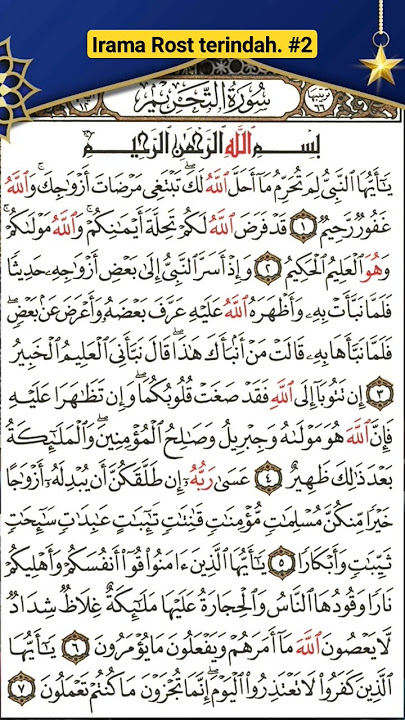 Irama Rost terindah. #2
سُورَةُ التَّحْرِيمِ
بِسْمِ اللَّهِ الرَّحْمَٰنِ الرَّحِيمِ
يَٰٓأَيُّهَا النَّبِيُّ لِمَ تُحَرِّمُ مَآ أَحَلَّ اللَّهُ لَكَۖ تَبْتَغِي مَرْضَاتَ أَزْوَٰجِكَۚ وَاللَّهُ
غَفُورٌ رَّحِيمٌ ١ قَدْ فَرَضَ اللَّهُ لَكُمْ تَحِلَّةَ أَيْمَٰنِكُمْۚ وَاللَّهُ مَوْلَىٰكُمْۖ
وَهُوَ الْعَلِيمُ الْحَكِيمُ ٢ وَإِذْ أَسَرَّ النَّبِيُّ إِلَىٰ بَعْضِ أَزْوَٰجِهِۦ حَدِيثًا
فَلَمَّا نَبَّأَتْ بِهِۦ وَأَظْهَرَهُ اللَّهُ عَلَيْهِ عَرَّفَ بَعْضَهُۥ وَأَعْرَضَ عَنۢ بَعْضٍۖ
فَلَمَّا نَبَّأَهَا بِهِۦ قَالَتْ مَنْ أَنۢبَأَكَ هَٰذَاۖ قَالَ نَبَّأَنِيَ الْعَلِيمُ الْخَبِيرُ
٣ إِن تَتُوبَآ إِلَى اللَّهِ فَقَدْ صَغَتْ قُلُوبُكُمَاۖ وَإِن تَظَٰهَرَا عَلَيْهِ
فَإِنَّ اللَّهَ هُوَ مَوْلَىٰهُ وَجِبْرِيلُ وَصَٰلِحُ الْمُؤْمِنِينَۖ وَالْمَلَٰٓئِكَةُ
بَعْدَ ذَٰلِكَ ظَهِيرٌ ٤ عَسَىٰ رَبُّهُۥٓ إِن طَلَّقَكُنَّ أَن يُبْدِلَهُۥٓ أَزْوَٰجًا
خَيْرًا مِّنكُنَّ مُسْلِمَٰتٍ مُّؤْمِنَٰتٍ قَٰنِتَٰتٍ تَٰٓئِبَٰتٍ عَٰبِدَٰتٍ سَٰٓئِحَٰتٍ
ثَيِّبَٰتٍ وَأَبْكَارًا ٥ يَٰٓأَيُّهَا الَّذِينَ ءَامَنُوا قُوٓا أَنفُسَكُمْ وَأَهْلِيكُمْ
نَارًا وَقُودُهَا النَّاسُ وَالْحِجَارَةُ عَلَيْهَا مَلَٰٓئِكَةٌ غِلَاظٌ شِدَادٌ
لَّا يَعْصُونَ اللَّهَ مَآ أَمَرَهُمْ وَيَفْعَلُونَ مَا يُؤْمَرُونَ ٦ يَٰٓأَيُّهَا
الَّذِينَ كَفَرُوا لَا تَعْتَذِرُوا الْيَوْمَۖ إِنَّمَا تُجْزَوْنَ مَا كُنتُمْ تَعْمَلُونَ ٧